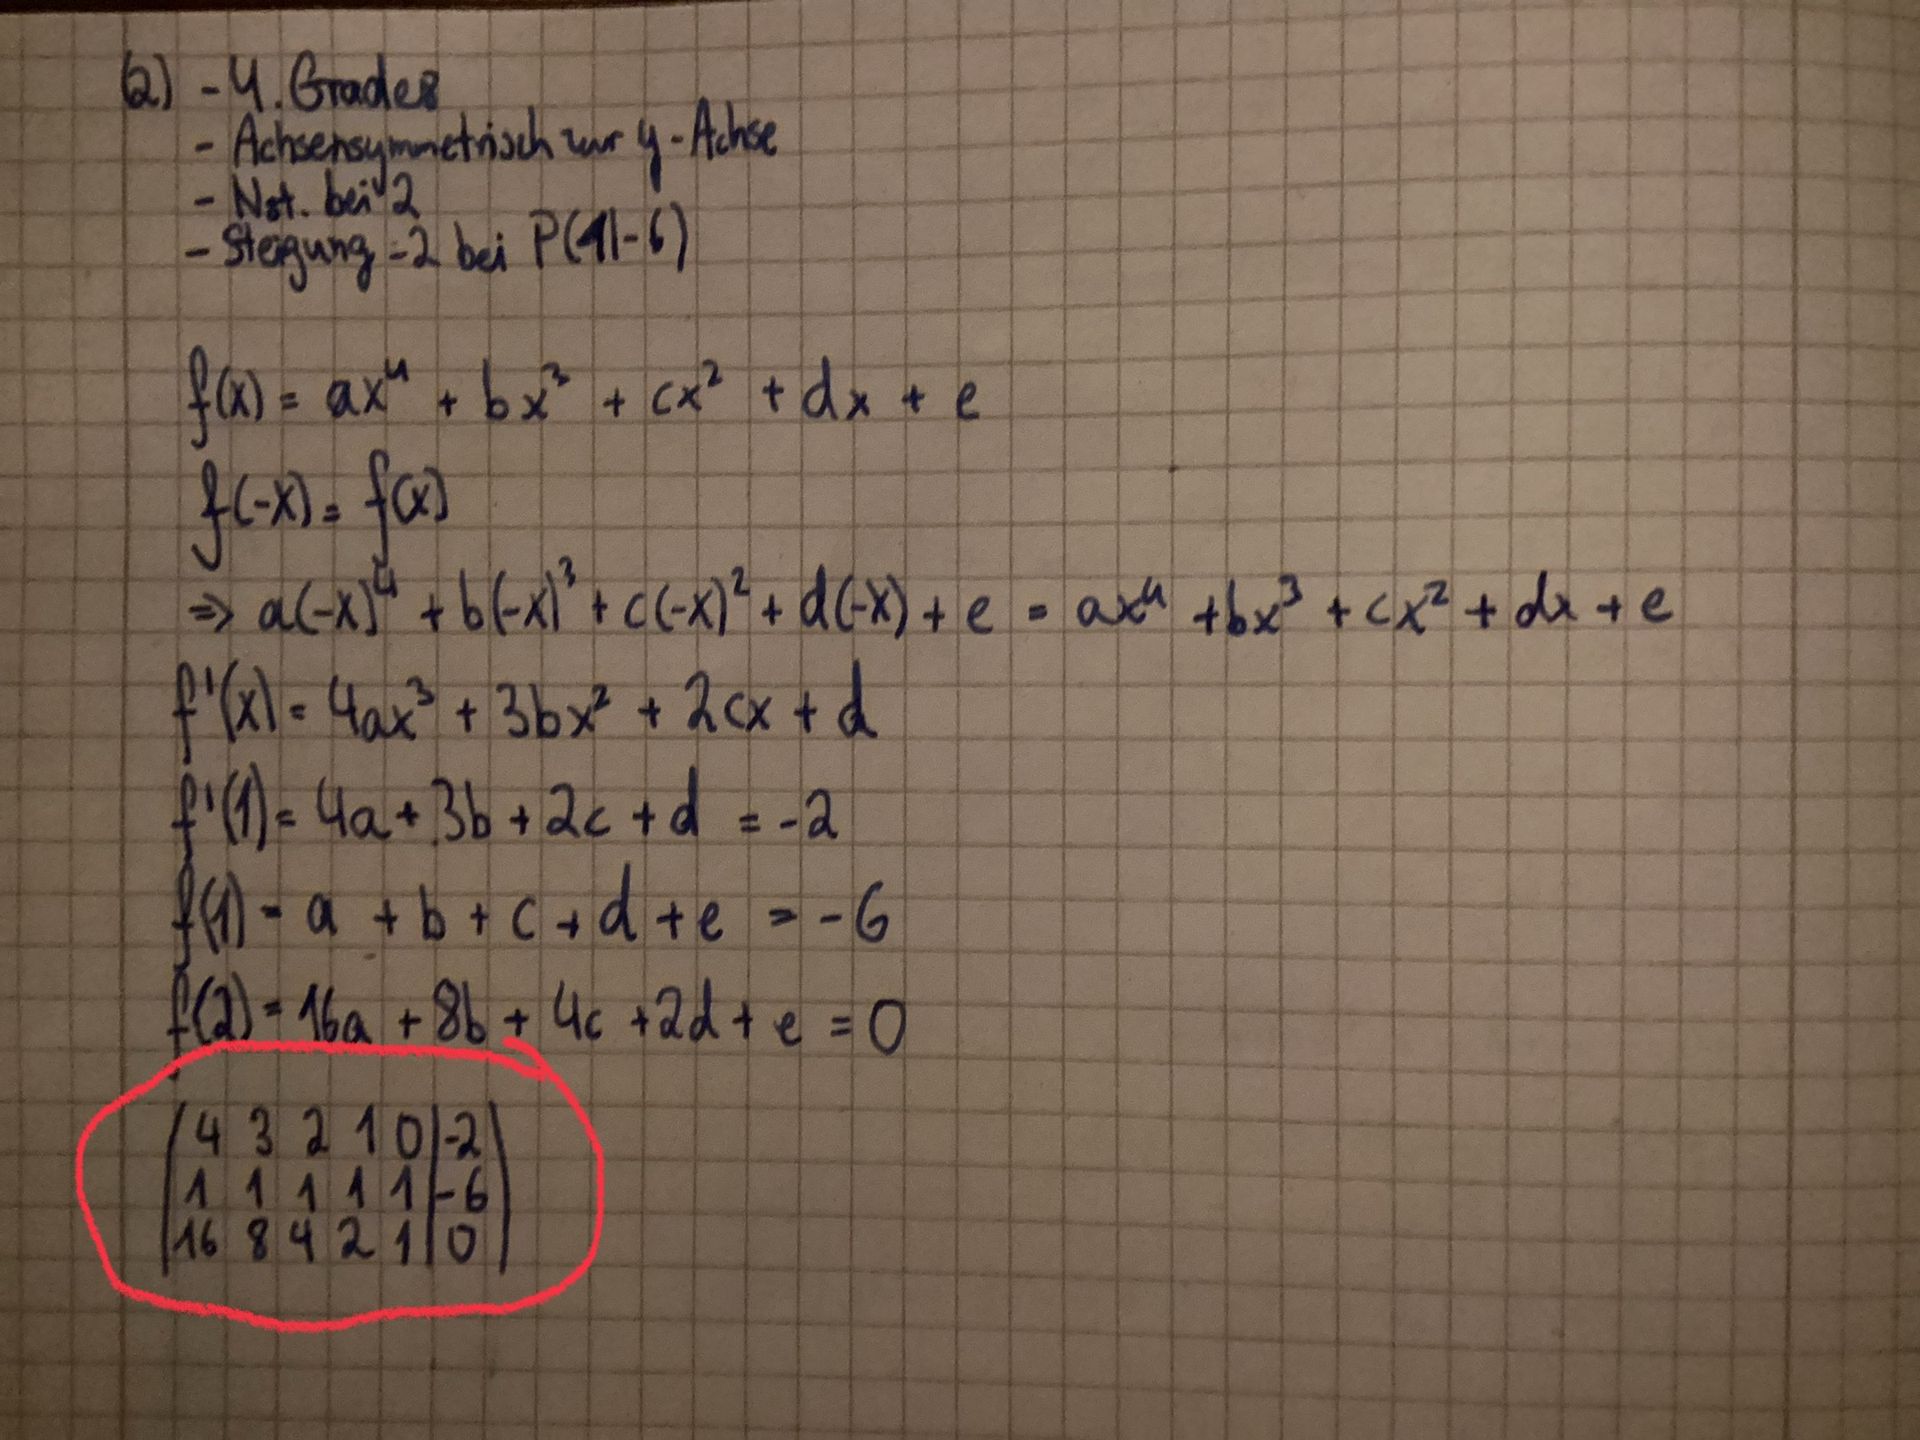 (2) - 4. Grades
- Achsensymmetrisch zur y-Achse
- Nst. bei 2
- Steigung -2 bei P(1|-6)
f(x) = ax⁴ + bx³ + cx² + dx + e
f(-x) = f(x)
⇒ a(-x)⁴ + b(-x)³ + c(-x)² + d(-x) + e = ax⁴ + bx³ + cx² + dx + e
f'(x) = 4ax³ + 3bx² + 2cx + d
f'(1) = 4a + 3b + 2c + d = -2
f(1) = a + b + c + d + e = -6
f(2) = 16a + 8b + 4c + 2d + e = 0
4 3 2 1 0 | -2
1 1 1 1 1 | -6
16 8 4 2 1 | 0